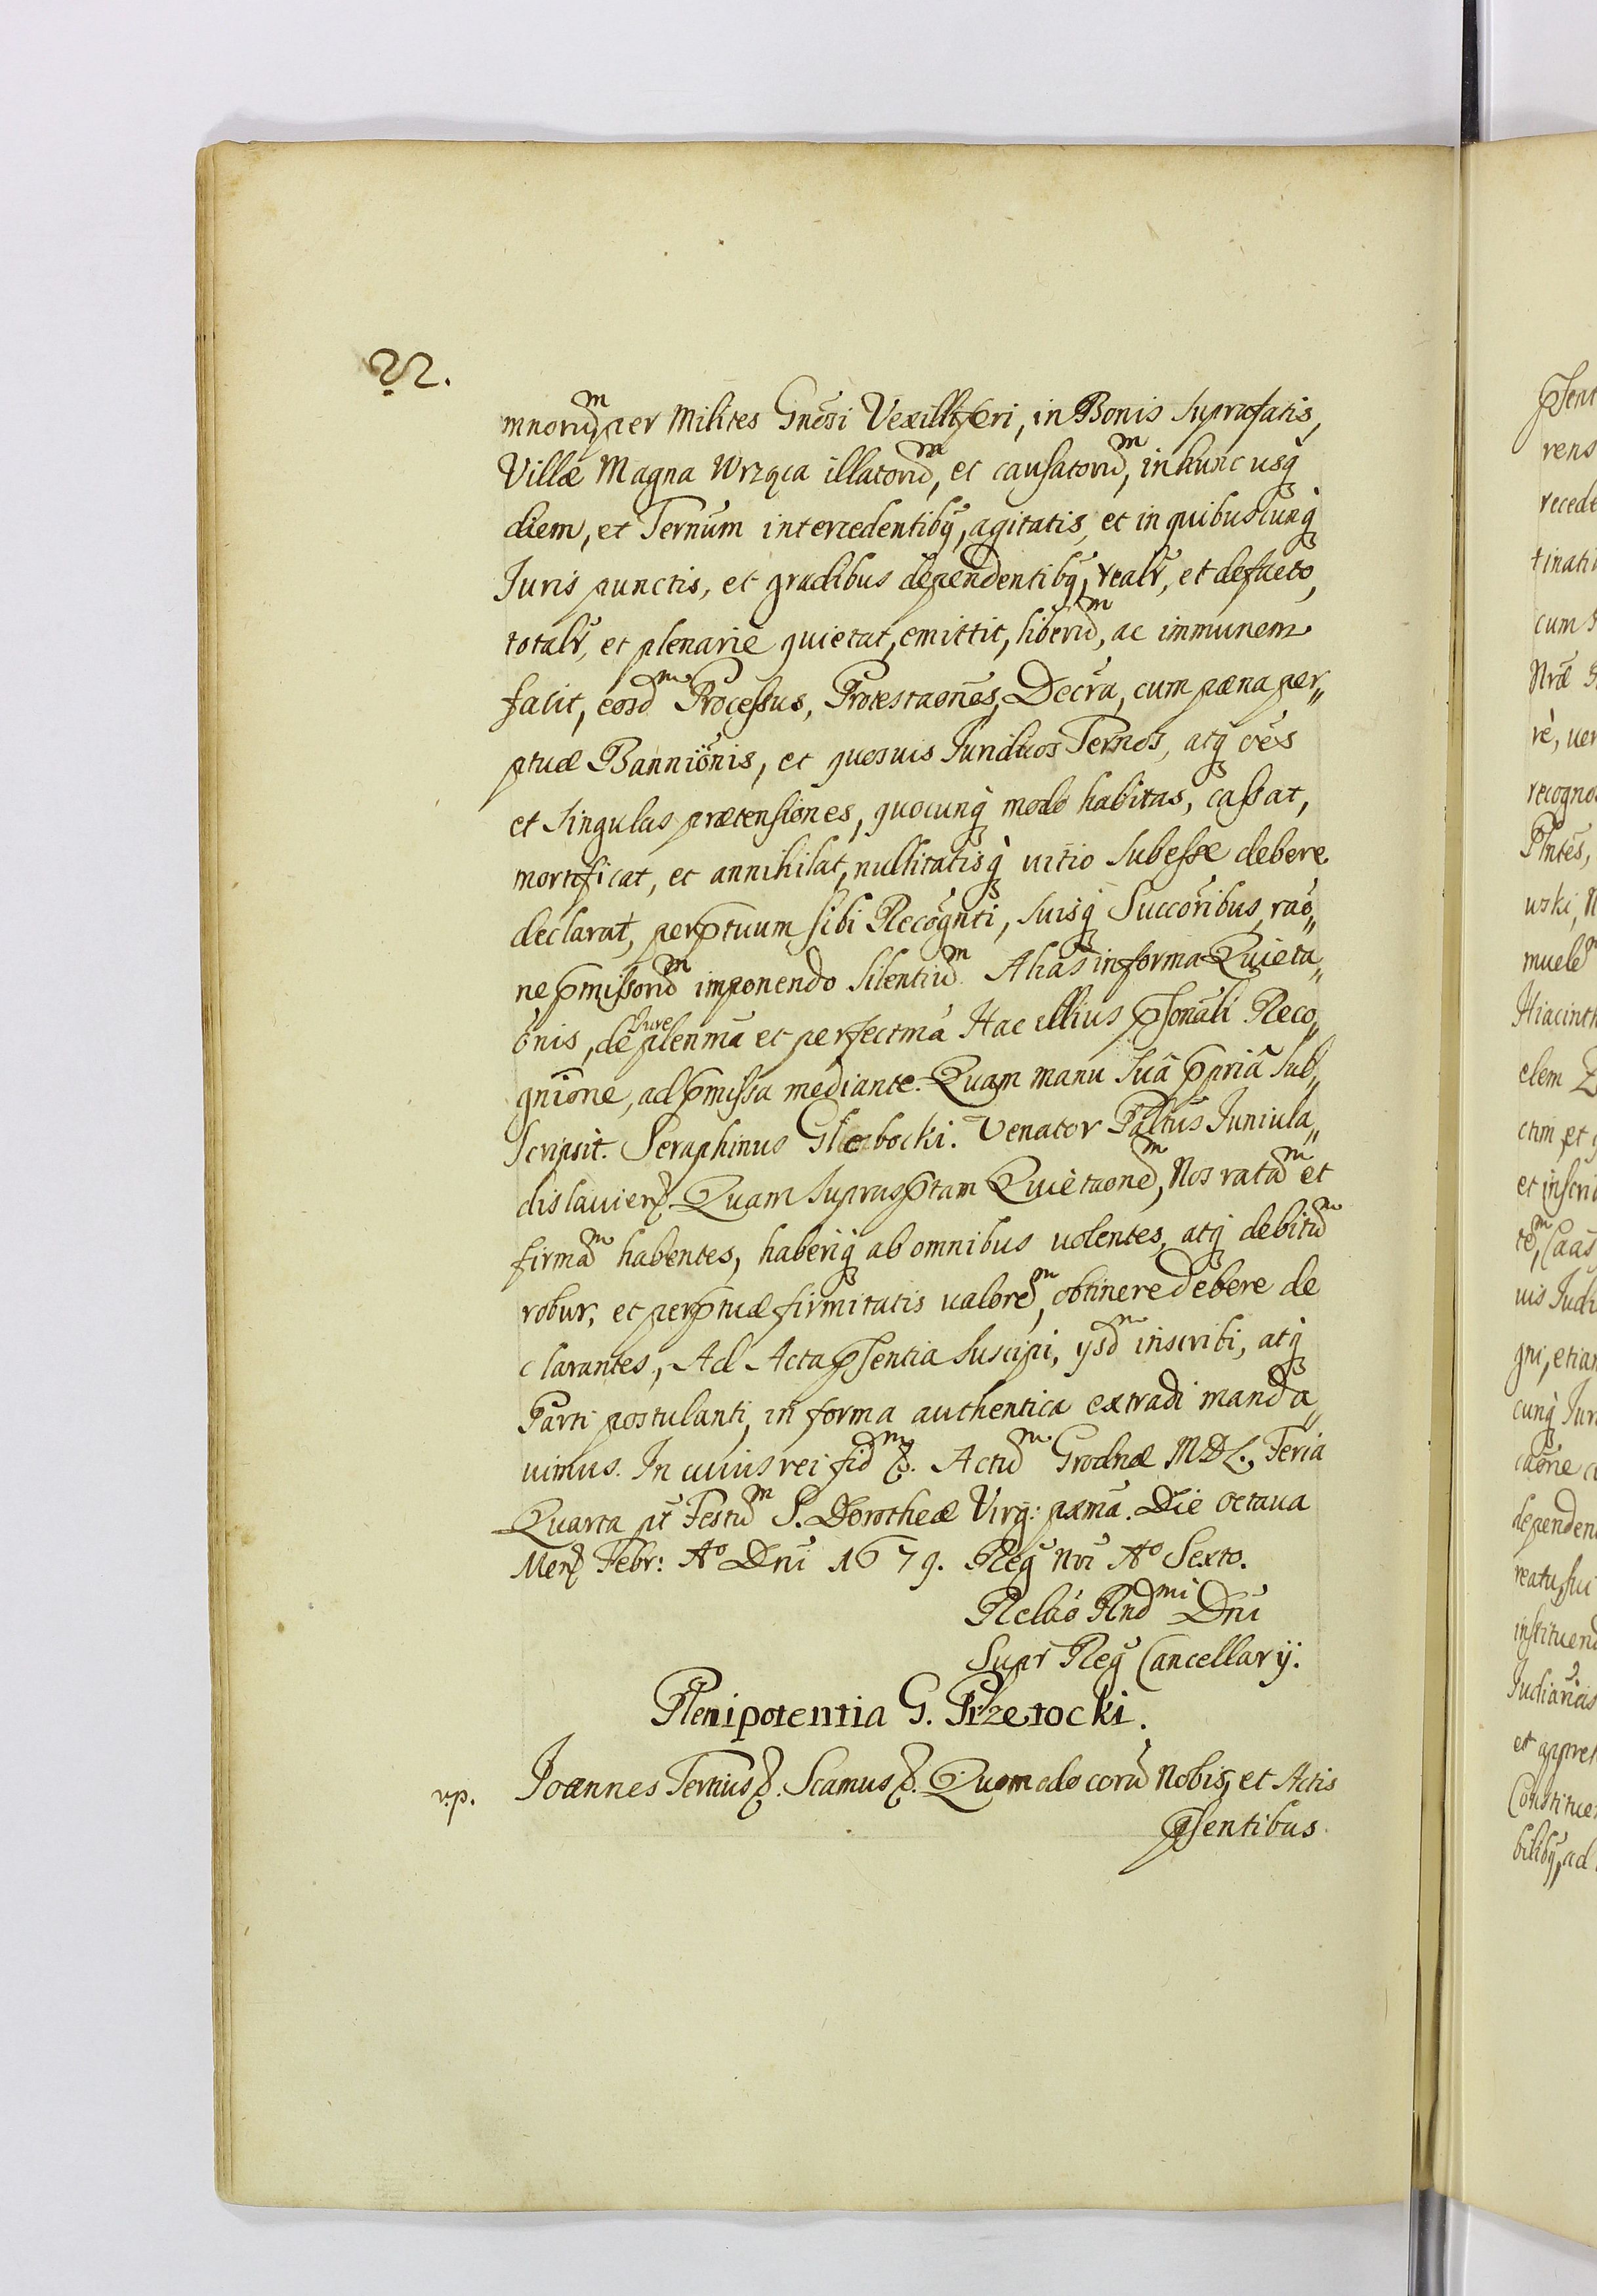 22.
mnorũm per Milites Gnõsi Vexilliferi, in Bonis suprafatis,
Villæ Magna Wrząca illatorũm, et causatorũm, in hunc usq̃
diem, et Ternum intercedentibq̃, agitatis, et in quibuscunq̃
Juris punctis, et gradibus dependentibq̃, realr̃, et defacto,
totalr̃, et plenariè quietat, emittit, liberũm, ac immunem
facit, eosdm Processus, Protestaões, Decr̃a, cum pæna per„
ptuæ Banniõnis, et quosuis Juridicos Ternõs, atq̃ oẽs
et singulas prætensiones, quocunq̃ modo habitas, cassat,
mortificat, et annihilat, nullitatisq̃ uitio subesse debere
declarat, perptuum sibi Recognti, suisq̃ Succoribus, raõ„
ne pmissorũm imponendo silentiũm. Alias in forma Quieta„
õnis, de Jure plenmã et perfectmã Hac illius psonali Reco„
gniõne, ad pmissa mediante. Quam manu suâ ppriâ sub„
scripsit. Seraphinus Głębocki. Venator Paltũs Juniula„
dislauien. Quam suprasptam Quietaonẽm, Nos ratãm et
firmãm habentes, haberiq̃ ab omnibus uolentes, atq̃ debitũm
robur, et perptuæ firmitatis ualorẽm, obtinere debere de
clarantes, Ad Acta psentia suscipi, ysdm inscribi, atq̃
Parti postulanti, in forma authentica extradi manda„
uimus. In cuius rei fidm &. Actũm Grodnæ MDL. Feria
Quarta pt̃ Festũm S. Dorotheæ Virg: pæmã. Die octaua
Mens Febr: Aº Dni 1679. Reg̃ Nri Aº Sexto.
Relaõ Rndmi Dni
Supr Reg̃ Cancellarij.
Plenipotentia G. Przetocki.
vp. Joannes Tertius &. Scamus &. Quomodo corũ Nobis, et Actis
psentibus